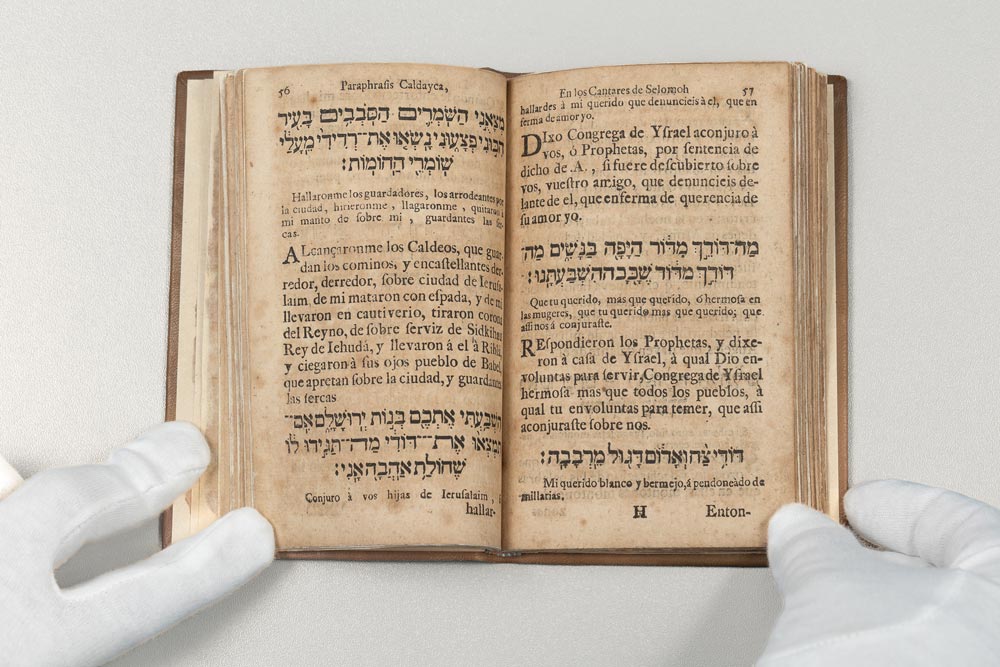 56 Paraphraſis Caldayca,
מְצָאֻנִי הַשֹּׁמְרִים הַסֹּבְבִים בָּעִיר
הִכּוּנִי פְצָעוּנִי נָשְׂאוּ אֶת־רְדִידִי מֵעָלַי
שׁוֹמְרֵי הַחוֹמוֹת:
Hallaronme los guardadores, los arrodeantes por
la ciudad, hirieronme, llagaronme, quitaron à
mi manto de ſobre mi, guardantes las ſer-
cas.
ALcançaronme los Caldeos, que guar-
dan los cominos, y encaſtellantes der-
redor, derredor, ſobre ciudad de Ieruſ-
laim, de mi mataron con eſpada, y de mi
llevaron en cautiverio, tiraron corona
del Reyno, de ſobre ſerviz de Sidkihau
Rey de Iehudá, y llevaron á el à Riblà
y ciegaron à ſus ojos pueblo de Babel,
que apretan ſobre la ciudad, y guardantes
las ſercas
הִשְׁבַּעְתִּי אֶתְכֶם בְּנוֹת יְרוּשָׁלָםִ אִם־
תִּמְצְאוּ אֶת־דּוֹדִי מַה־תַּגִּידוּ לוֹ
שֶׁחוֹלַת אַהֲבָה אָנִי:
Conjuro à vos hijas de Ieruſalaim, ſi
hallar-
En los Cantares de Selomoh 57
hallardes à mi querido que denuncieis à el, que en
ferma de amor yo.
DIxo Congrega de Yſrael aconjuro à
vos, ó Prophetas, por ſentencia de
dicho de .A., ſi fuere deſcubierto ſobre
vos, vueſtro amigo, que denuncieis de-
lante de el, que enferma de querencia de
ſu amor yo.
מַה־דּוֹדֵךְ מִדּוֹד הַיָּפָה בַּנָּשִׁים מַה־
דּוֹדֵךְ מִדּוֹד שֶׁכָּכָה הִשְׁבַּעְתָּנוּ:
Que tu querido, mas que querido, ó hermoſa en
las mugeres, que tu querido mas que querido; que
aſſi nos á conjuraſte.
REſpondieron los Prophetas, y dixe-
ron à caſa de Yſrael, à qual Dio en-
voluntas para ſervir, Congrega de Yſrael
hermoſa mas que todos los pueblos, à
qual tu envoluntas para temer, que aſſi
aconjuraſte ſobre nos.
דּוֹדִי צַח וְאָדוֹם דָּגוּל מֵרְבָבָה:
Mi querido blanco y bermejo, á pendoneàdo de
millarias.
H Enton-